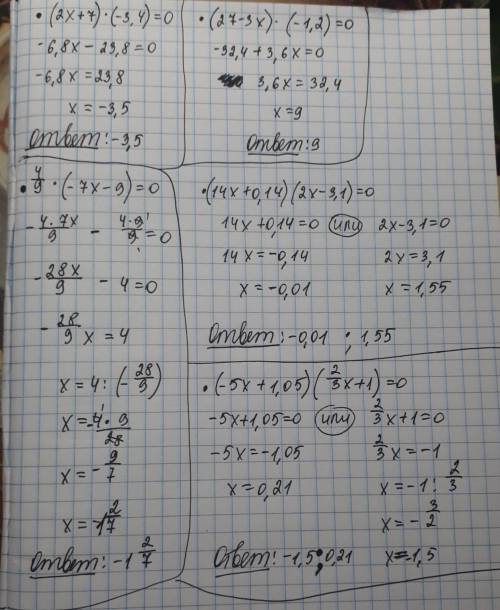 • (2x+7)·(-3,4)=0
-6,8x-23,8=0
-6,8x=23,8
x=-3,5
Ответ: -3,5
• (27-3x)·(-1,2)=0
-32,4+3,6x=0
3,6x=32,4
x=9
Ответ: 9
• 4/9·(-7x-9)=0
-4·7x/9 - 4·9/9=0
-28x/9 - 4=0
-28/9 x=4
x=4:(-28/9)
x=-4·9/28
x=-9/7
x=-1 2/7
Ответ: -1 2/7
• (14x+0,14)(2x-3,1)=0
14x+0,14=0 или 2x-3,1=0
14x=-0,14 2x=3,1
x=-0,01 x=1,55
Ответ: -0,01 ; 1,55
• (-5x+1,05)(2/3x+1)=0
-5x+1,05=0 или 2/3x+1=0
-5x=-1,05 2/3x=-1
x=0,21 x=-1:2/3
x=-3/2
Ответ: -1,5;0,21 x=-1,5